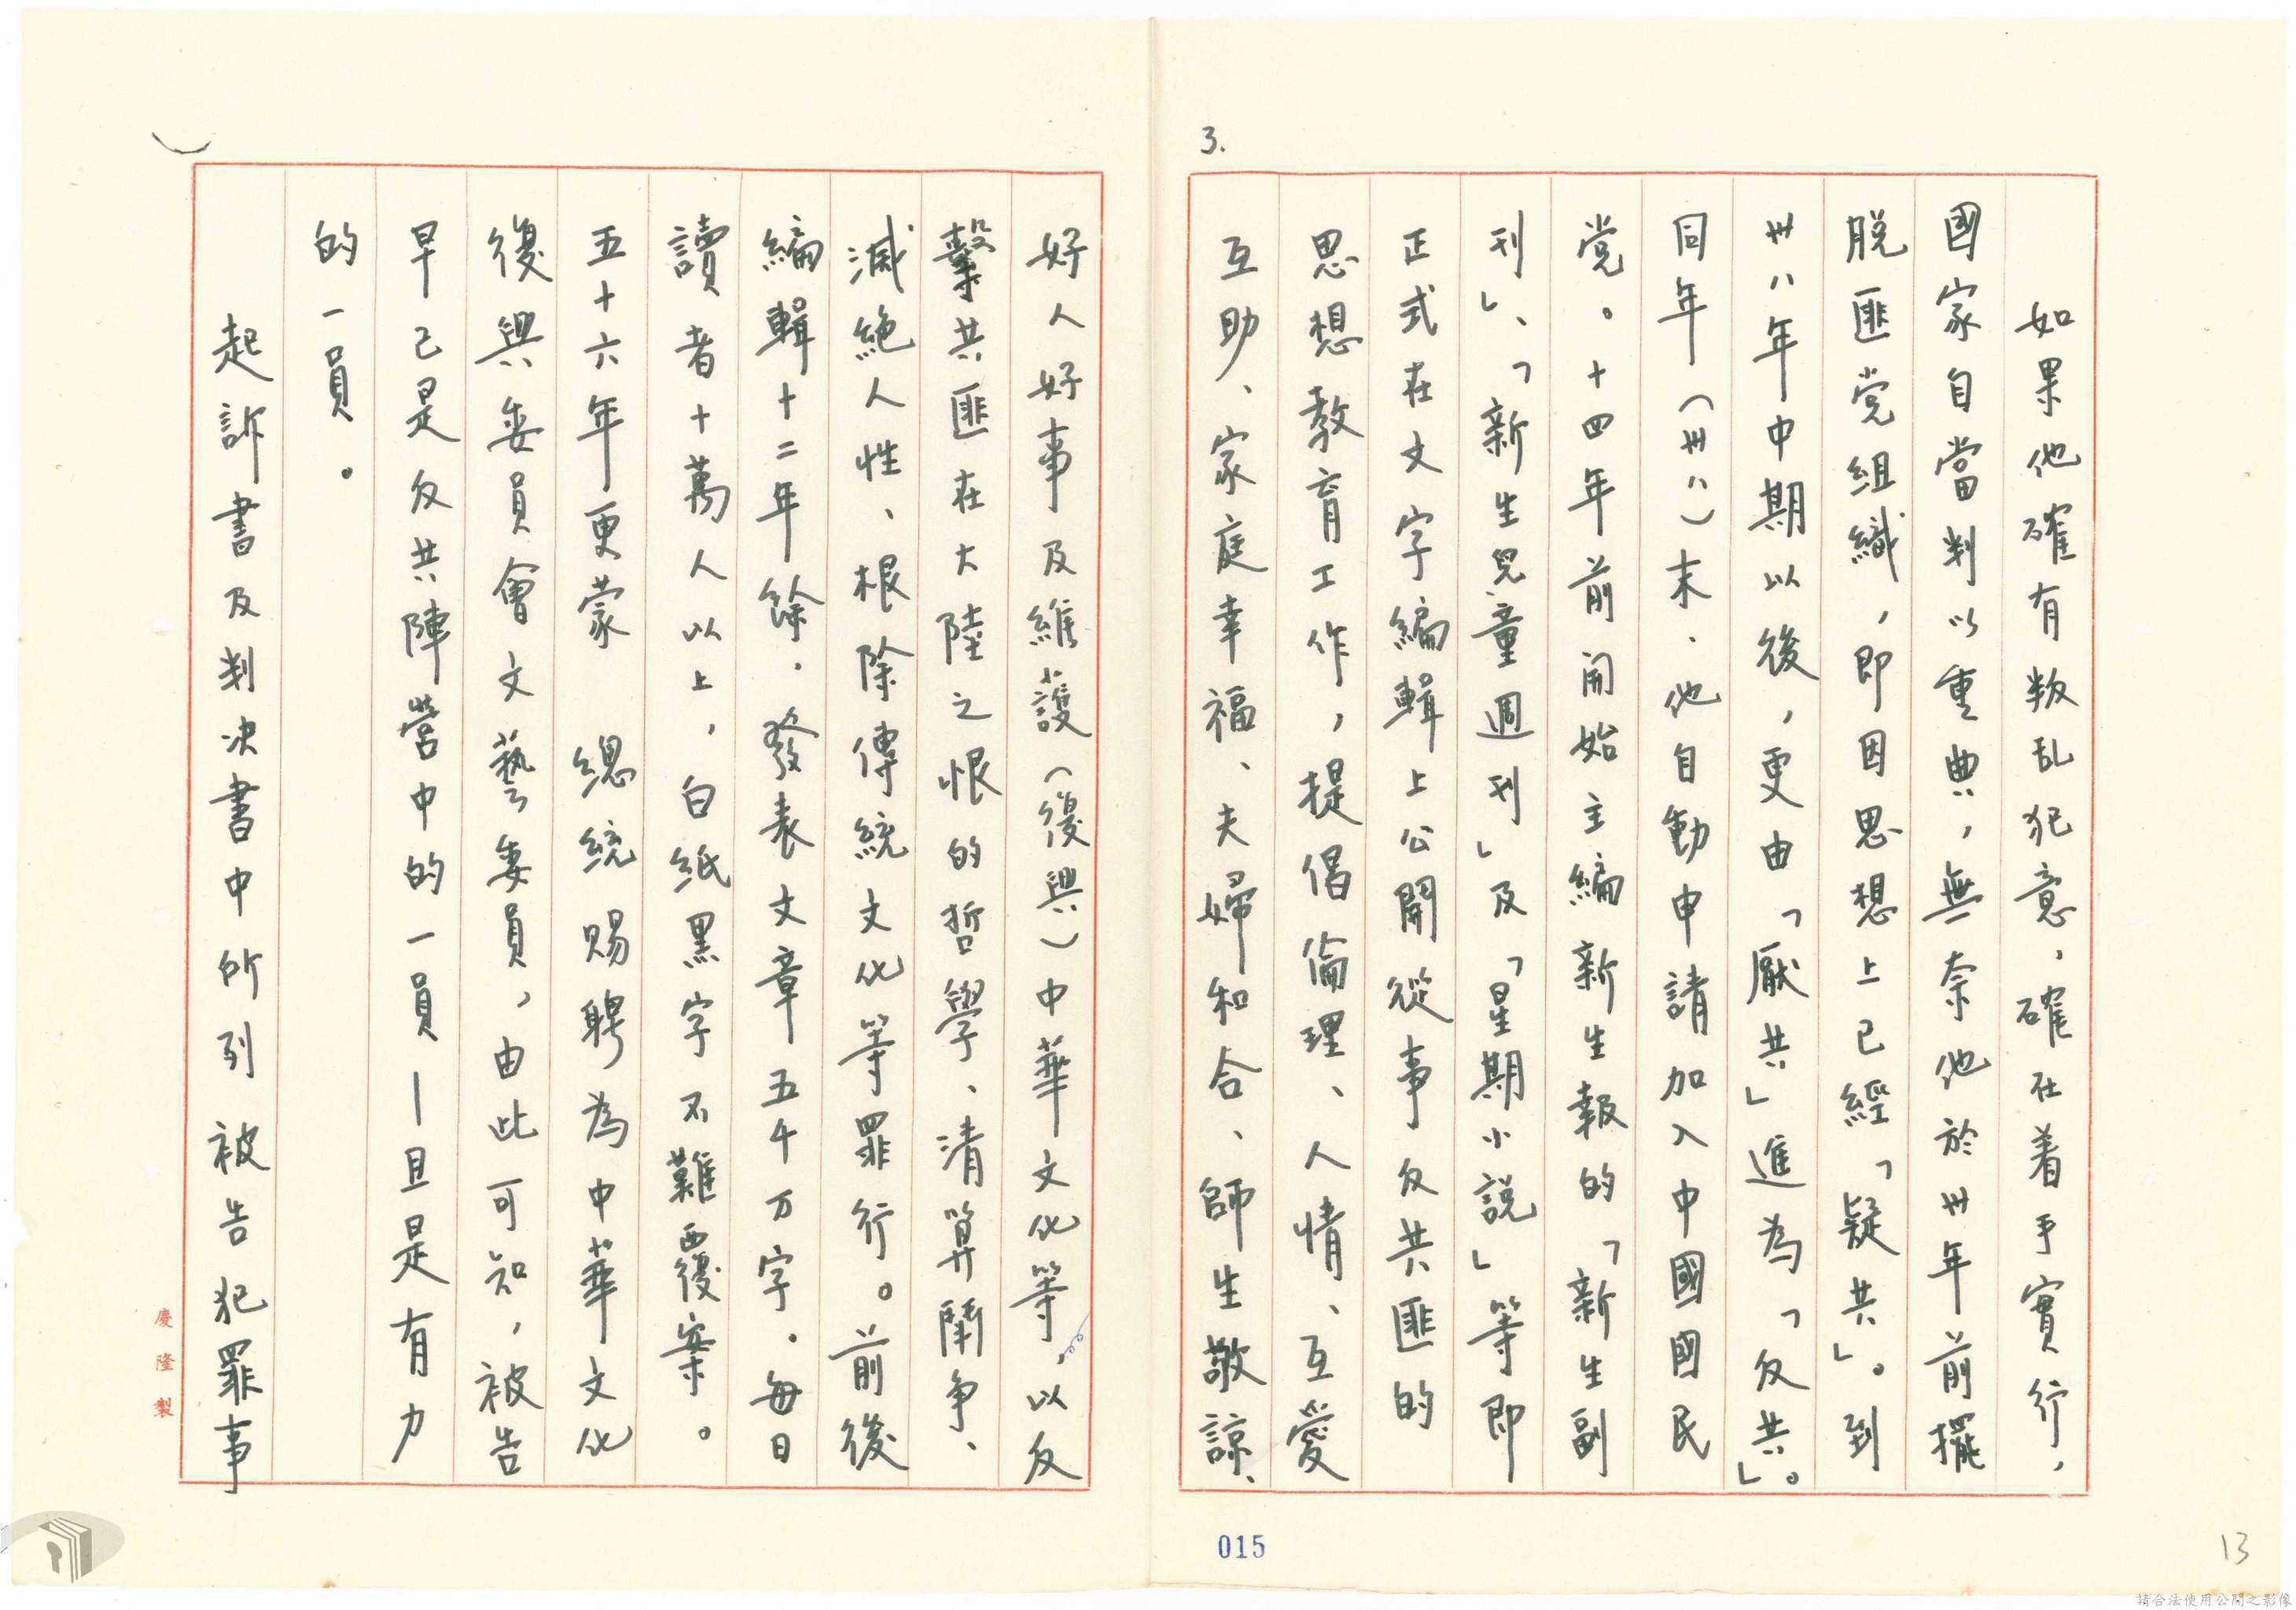 3.
如果他確有叛乱犯意，確在着手實行，
國家自當判以重典，無奈他於卅年前擺
脱匪党組織，即因思想上已經「疑共」。到
卅八年中期以後，更由「厭共」進為「反共」。
同年（卅八）末．他自動申請加入中國國民
党。十四年前開始主編新生報的「新生副
刊」、「新生兒童週刊」及「星期小說」等即
正式在文字編輯上公開從事反共匪的
思想教育工作，提倡倫理、人情、互愛
互助、家庭幸福、夫婦和合、師生敬諒、
好人好事及維護（復興）中華文化等，以反
擊共匪在大陸之恨的哲學、清算鬪争、
滅絶人性、根除傳統文化等罪行。前後
編輯十二年餘．發表文章五千万字。每日
讀者十萬人以上，白紙黑字不難覆案。
五十六年更蒙　總統賜聘為中華文化
復興委員會文藝委員，由此可知，被告
早已是反共陣營中的一員—且是有力
的一員。
起訴書及判决書中所列被告犯罪事
慶隆製
015
13
請合法使用公開之影像